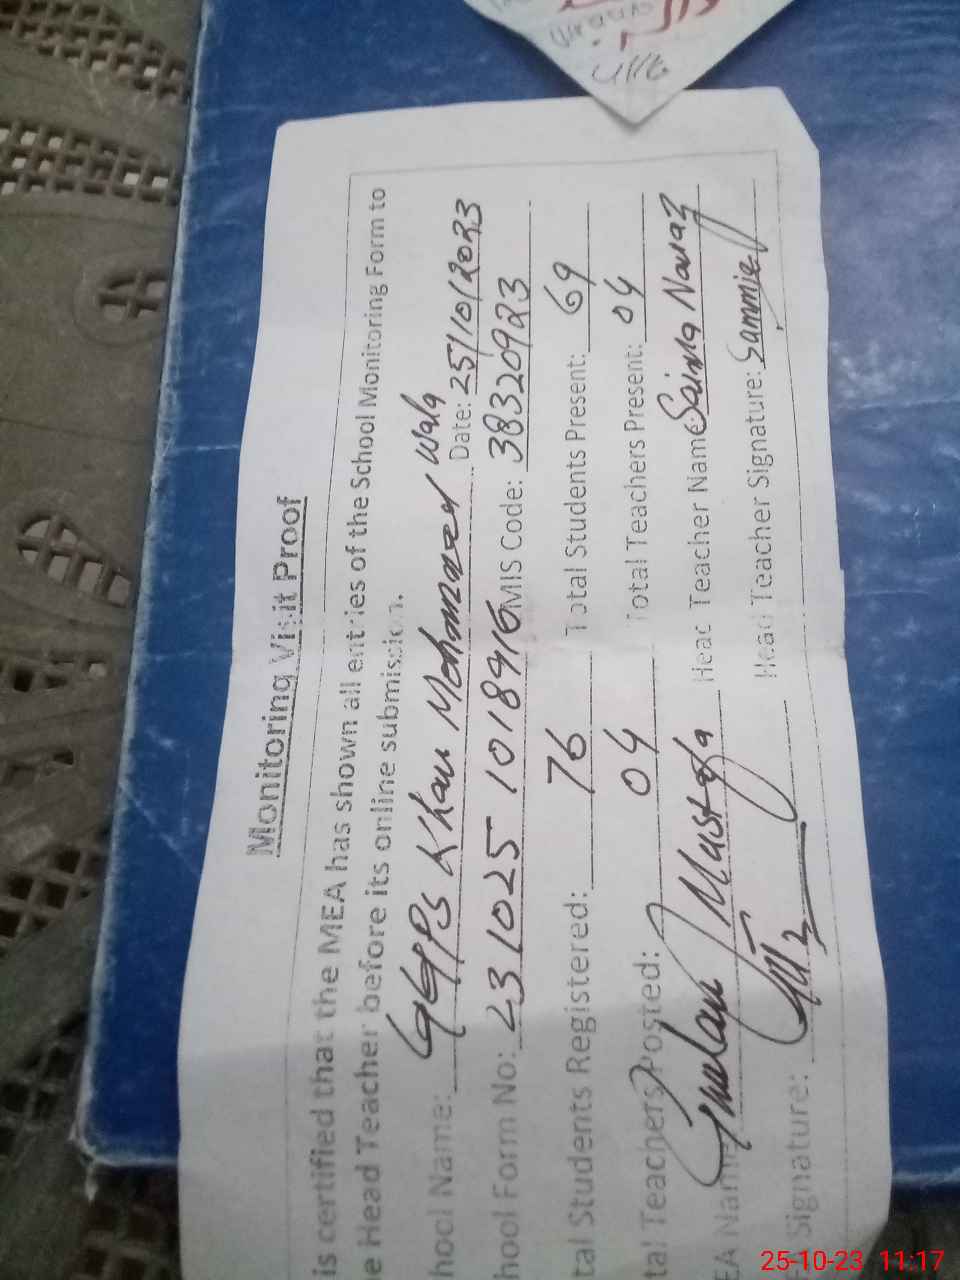 Monitoring Visit Proof
is certified that the MEA has shown all entries of the School Monitoring Form to
e Head Teacher before its online submission.
hool Name: GGPS Khan Mohammad Wala
hool Form No: 231025 1018916 MIS Code: 38320923 Date: 25/10/2023
tal Students Registered: 76 Total Students Present: 69
tal Teachers Posted: 04 Total Teachers Present: 04
EA Name: Ghulam Mustafa Head Teacher Name: Saima Nawaz
Signature: Head Teacher Signature: Sammie
25-10-23 11:17